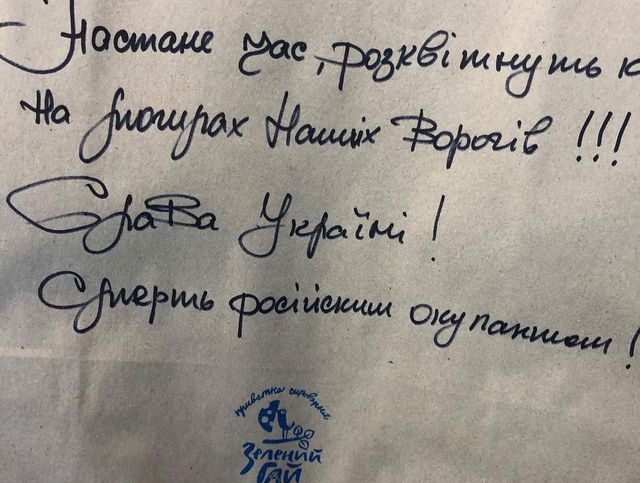 Настане час, розквітнуть к
На могилах Наших Ворогів !!!
Слава Україні !
Смерть російским окупантам !
приватна сироварня
Зелений
Гай